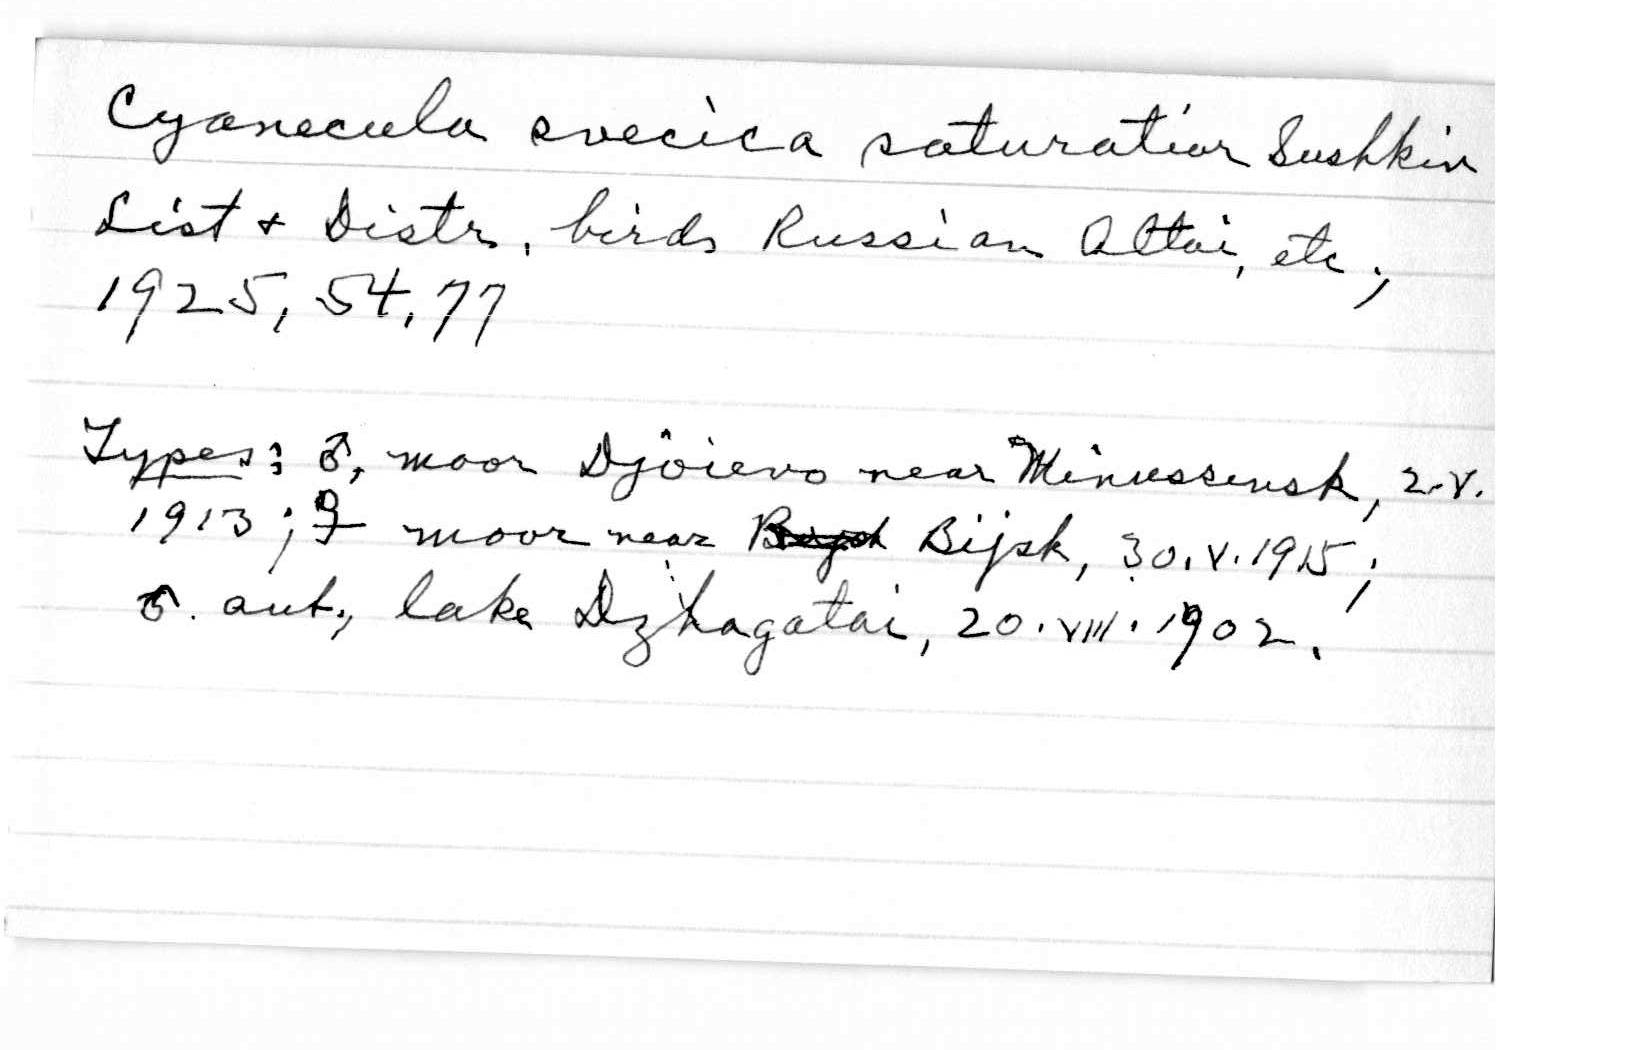 Cyanecula svecica saturatior Sushkin
List + Distr. birds Russian Altai, etc.,
1925, 54, 77
Types: ♂, moor Djöievo near Minussinsk, 2.V.
1913; ♀ moor near Bijsk, 30.V.1915;
♂. aut., lake Dzhagatai, 20.VIII.1902.